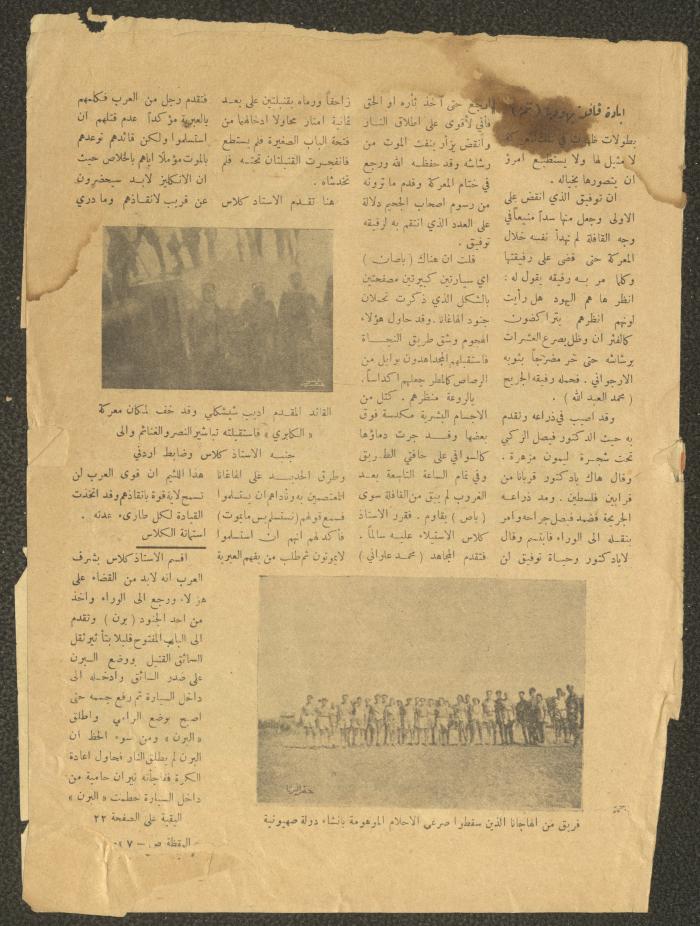 ابادة قافلة يهودية (تتمة)
بطولات ظهرت في تلك
لا مثيل لها ولا يستطيع امرؤ
ان يتصورها بخياله .
ان توفيق الذي انقض على
الاولى وجعل منها سداً منيعاً في
وجه القافلة لم تهدأ نفسه خلال
المعركة حتى قضى على رفيقتها
وكلما مر به رفيقه يقول له :
انظر ها هم اليهود هل رأيت
لونهم انظرهم يتراكضون
كالفئران وظل يصرع العشرات
برشاشه حتى خر مضرجاً بثوبه
الارجواني . فحمله رفيقه الجريح
( محمد العبد الله ) .
وقد اصيب في ذراعه وتقدم
به حيث الدكتور فيصل الركبي
تحت شجرة ليمون مزهرة .
وقال هاك يادكتور قربانا من
قرابين فلسطين . ومد ذراعه
الجريحة فضمد فيصل جراحه وامر
بنقله الى الوراء فابتسم وقال
لا يادكتور وحياة توفيق لن
ارجع حتى آخذ ثأره او الحق
فأني لأقوى على اطلاق النار
وانقض يزأر ينفث الموت من
رشاشه وقد حفظه الله ورجع
في ختام المعركة وقدم ما ترونه
من رسوم اصحاب الجحيم دلالة
على العدد الذي انتقم به لرفيقه
توفيق .
قلت ان هناك ( باصان )
اي سيارتين كبيرتين مصفحتين
بالشكل الذي ذكرت تحملان
جنود الهاغانا . وقد حاول هؤلاء
الهجوم وشق طريق النجاة
فاستقبلهم المجاهدون بوابل من
الرصاص كالمطر جعلهم اكداساً .
يالروعة منظرهم . كتل من
الاجسام البشرية مكدسة فوق
بعضها وقد جرت دماؤها
كالسواقي على حافتي الطريق
وفي تمام الساعة التاسعة بعد
الغروب لم يبق من القافلة سوى
( باص ) يقاوم . فقرر الاستاذ
كلاس الاستيلاء عليه سالماً .
فتقدم المجاهد ( محمد عاراني )
زاحفاً ورماه بقنبلتين على بعد
ثمانية امتار محاولا ادخالهما من
فتحة الباب الصغيرة فلم يستطع
فانفجرت القنبلتان تحته فلم
تخدشاه .
هنا تقدم الاستاذ كلاس
وطرق الحديد على الهاغانا
المعتصمين به وناداهم ان يستسلموا
فسمع قولهم ( نستسلم بس مانموت )
فأكد لهم انهم ان استسلموا
لايموتون ثم طلب من يفهم العبرية
فتقدم رجل من العرب فكلمهم
بالعبرية مؤكداً عدم قتلهم ان
استسلموا ولكن قائدهم توعدهم
بالموت مؤملا اياهم بالخلاص حيث
ان الانكليز لابد سيحضرون
عن قريب لانقاذهم وما دري
القائد المقدم اديب شيشكلي وقد خف لمكان معركة
« الكابري » فاستقبلته تباشير النصر والغنائم والى
جنبه الاستاذ كلاس وضابط اردني
هذا اللئيم ان قوى العرب لن
تسمح لاية قوة بانقاذهم وقد اتخذت
القيادة لكل طارىء عدته .
استماتة الكلاس
اقسم الاستاذ كلاس بشرف
العرب انه لابد من القضاء على
هؤلاء ورجع الى الوراء واخذ
من احد الجنود ( برن ) وتقدم
الى الباب المفتوح قليلا بتأثير ثقل
السائق القتيل ووضع البرن
على صدر السائق وادخله الى
داخل السيارة ثم رفع جسمه حتى
اصبح بوضع الرامي واطلق
« البرن » ومن سوء الحظ ان
البرن لم يطلق النار فحاول اعادة
الكرة ففاجأته نيران حامية من
داخل السيارة حطمت « البرن »
البقية على الصفحة ٢٢
فريق من الهاجانا الذين سقطوا صرعى الاحلام الموهومة بانشاء دولة صهيونية
اليقظة ص —